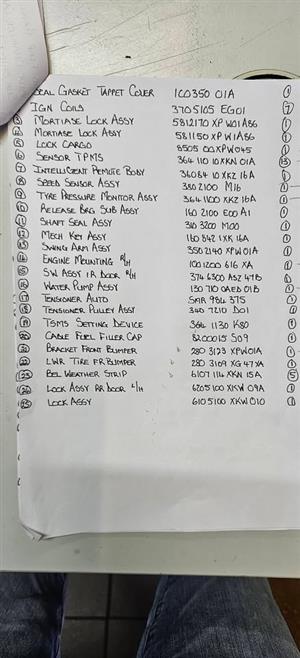 SEAL GASKET TAPPET COVER 1CO350 01A 1
IGN COILS 3705105 EG01 7
3 MORTIASE LOCK ASSY 5812170 XP W01A86 1
4 MORTIASE LOCK ASSY 581150 XP W1A86 1
5 LOCK CARGO 8505 00XPW045 1
6 SENSOR TPMS 364 110 10XKN 01A
7 INTELLIGENT REMOTE BODY 36084 10 XKZ 16A 1
8 SPEED SENSOR ASSY 380 2100 M16 1
9 TYRE PRESSURE MONITOR ASSY 364 1100 XKZ 16A 1
10 RELEASE BRG SUB ASSY 160 2100 E00 A1 1
11 SHAFT SEAL ASSY 310 3200 M00 1
12 MECH KEY ASSY 160 842 1XK 16A 1
13 SWING ARM ASSY 350 2140 XPW 01A 1
14 ENGINE MOUNTING R/H 1001200 616 XA 1
15 SW ASSY I R DOOR R/H 374 6300 ASZ 47B 1
16 WATER PUMP ASSY 130 710 0AED 01B 1
17 TENSIONER AUTO SMR 986 375 1
18 TENSIONER PULLEY ASSY 340 7210 D01 1
19 TSMS SETTING DEVICE 364 1130 K80
20 CABLE FUEL FILLER CAP 8200015 S09 1
21 BRACKET FRONT BUMPER 280 3123 XPW01A 1
22 LWR TIRE FR BUMPER 280 3109 XG 47XA 1
23 BEL WEATHER STRIP 6107 114 XKN 15A 5
24 LOCK ASSY RR DOOR L/H 6205100 XKW 09A 1
25 LOCK ASSY 6105100 XKW 010 1